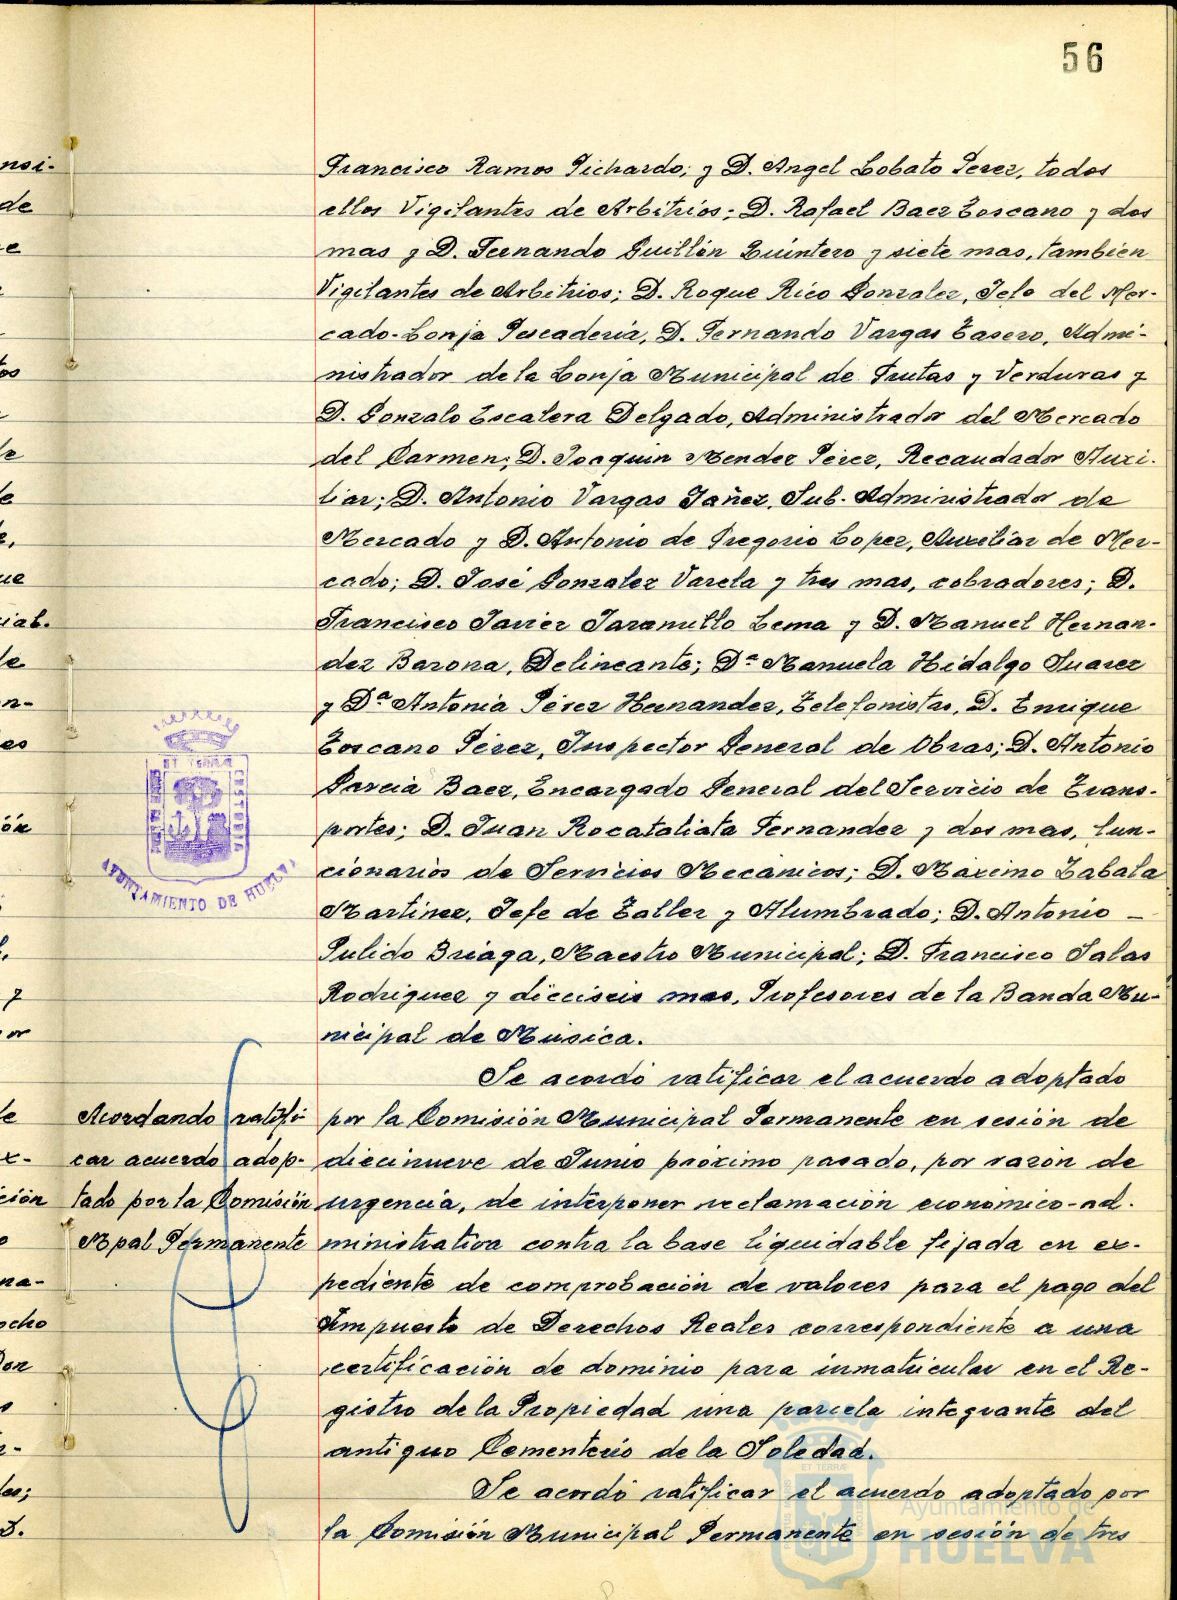 56
Francisco Ramos Pichardo; y D. Angel Lobato Perez, todos
ellos Vigilantes de Arbitrios; D. Rafael Baez Toscano y dos
mas y D. Fernando Guillén Quintero y siete mas, tambien
Vigilantes de Arbitrios; D. Roque Rico Gonzalez, Jefe del Mer-
cado-Lonja Pescaderia, D. Fernando Vargas Tasero, Admi-
nistrador de la Lonja Municipal de Frutas y Verduras y
D. Gonzalo Escalera Delgado, Administrador del Mercado
del Carmen; D. Joaquin Mendez Pérez, Recaudador Auxi-
liar; D. Antonio Vargas Yañez, Sub-Administrador de
Mercado y D. Antonio de Gregorio Lopez, Auxiliar de Mer-
cado; D. José Gonzalez Varela y tres mas, cobradores; D.
Francisco Javier Jaramillo Lema y D. Manuel Hernan-
dez Barona, Delineante; Dª Manuela Hidalgo Suarez
y Dª Antonia Pérez Hernandez, Telefonistas, D. Enrique
Toscano Pérez, Inspector General de Obras; D. Antonio
Garcia Baez, Encargado General del Servicio de Trans-
portes; D. Juan Rocataliata Fernandez y dos mas, fun-
cionarios de Servicios Mecánicos; D. Máximo Zabala
Martinez, Jefe de Taller y Alumbrado; D. Antonio —
Pulido Briaga, Maestro Municipal; D. Francisco Salas
Rodriguez y dieciseis mas, Profesores de la Banda Mu-
nicipal de Música.
Se acordó ratificar el acuerdo adoptado
por la Comisión Municipal Permanente en sesión de
diecinueve de Junio próximo pasado, por razón de
urgencia, de interponer reclamación económico-ad-
ministrativa contra la base liquidable fijada en ex-
pediente de comprobación de valores para el pago del
Impuesto de Derechos Reales correspondiente a una
certificación de dominio para inmatricular en el Re-
gistro de la Propiedad una parcela integrante del
antiguo Cementerio de la Soledad.
Se acordó ratificar el acuerdo adoptado por
la Comisión Municipal Permanente en sesión de tres
Acordando ratifi
car acuerdo adop-
tado por la Comisión
Mpal Permanente
AYUNTAMIENTO DE HUELVA
Ayuntamiento de
HUELVA